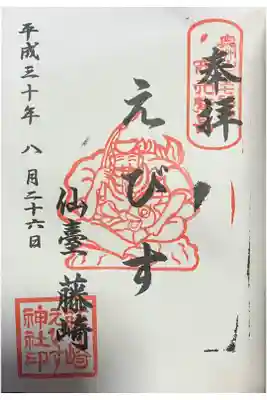 奉拝
えびす
仙臺 藤崎
平成三十年 八月二十六日
崎
えびす
神社印